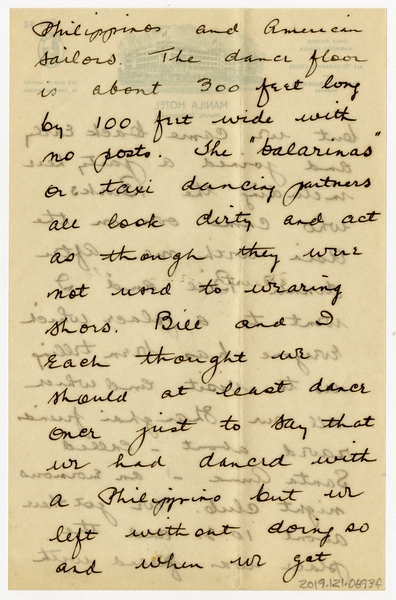 Philippinos and American
sailors. The dance floor
is about 300 feet long
by 100 feet wide with
no posts. The "balarinas"
or taxi dancing partners
all look dirty and act
as though they were
not used to wearing
shoes. Bill and I
each thought we
should at least dance
once just to say that
we had danced with
a Philippino but we
left without doing so
and when we get
2019.121.0693f